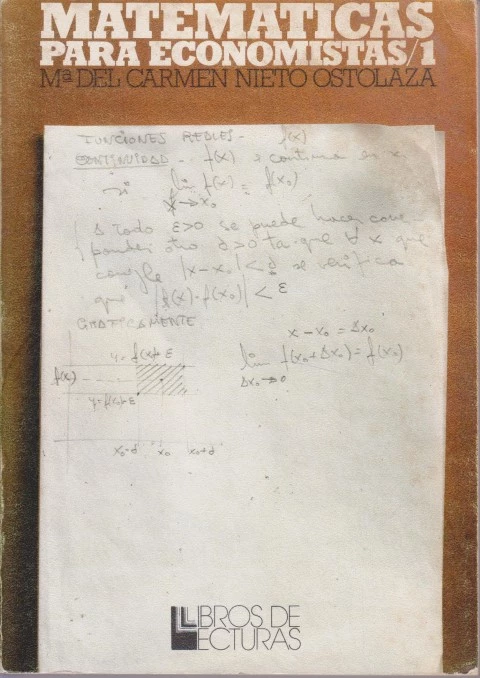 MATEMATICAS
PARA ECONOMISTAS/1
Mª DEL CARMEN NIETO OSTOLAZA
FUNCIONES REALES - f(x)
CONTINUIDAD - f(x) es continua en x
si lim f(x) = f(x₀)
x→x₀
A todo ε>0 se puede hacer corres
ponder otro δ>0 tal que ∀ x que
cumple |x-x₀|<δ se verifica
que |f(x)-f(x₀)| < ε
GRAFICAMENTE
x-x₀ = Δx₀
y = f(x)+ε
lim f(x₀+Δx₀) = f(x₀)
Δx₀→0
f(x₀)
x₀-δ x₀ x₀+δ
LIBROS DE
LECTURAS